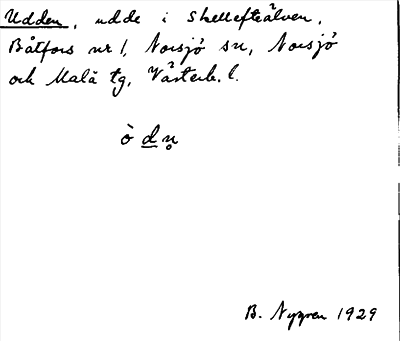 Udden, udde i Skellefteälven,
Båtfors nr 1, Norsjö sn, Norsjö
och Malå tg, Västerb. l.
ò d n̥
B. Nygren 1929